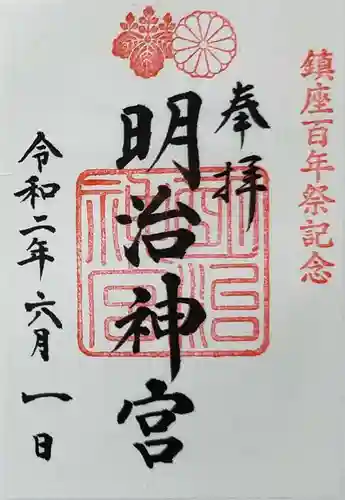 鎮座百年祭記念
奉拝
明治神宮
令和二年六月一日
明治神宮